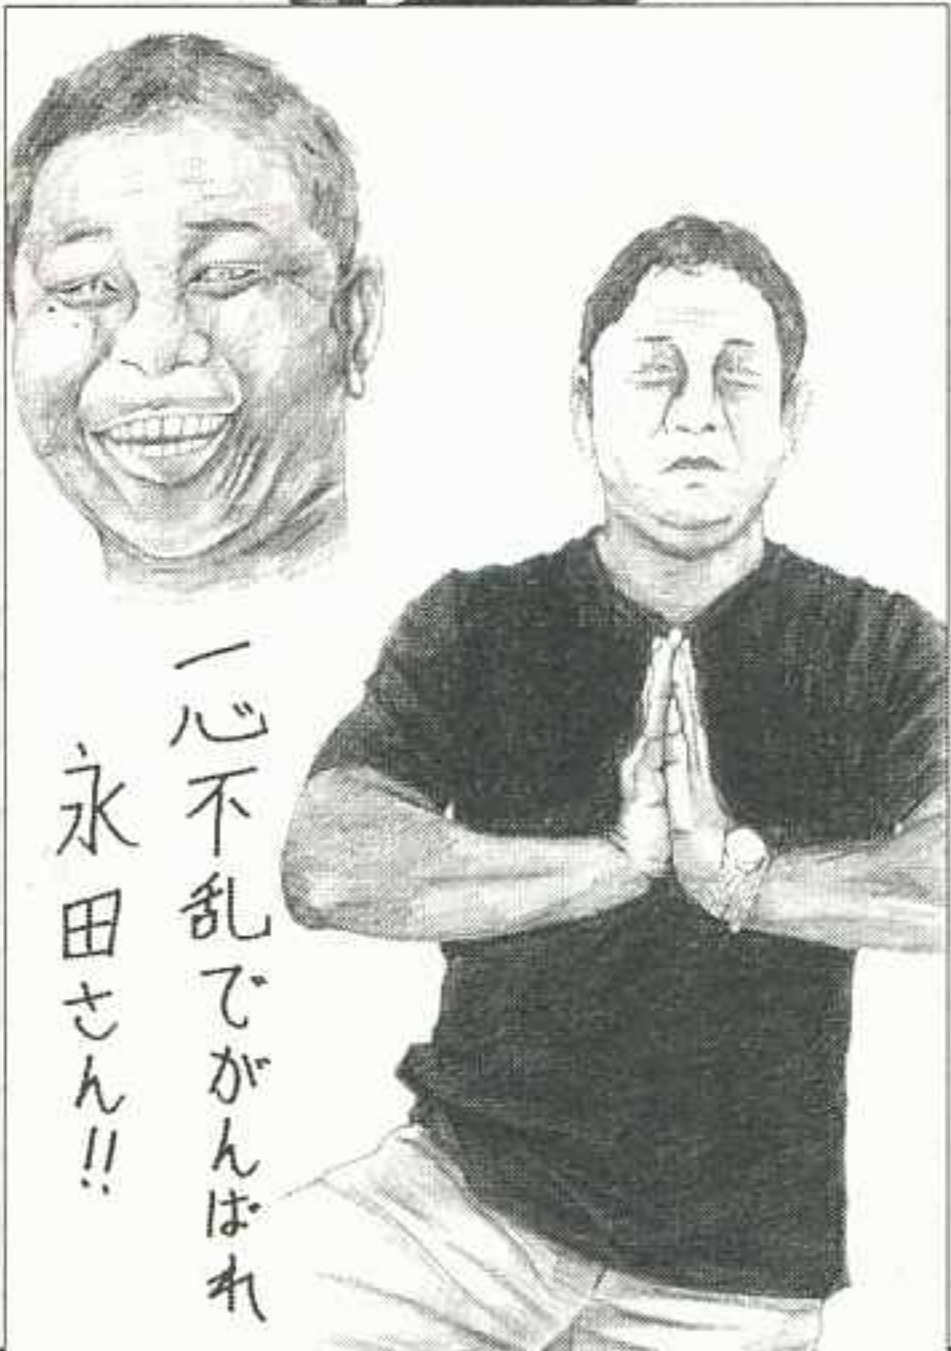 一心不乱でがんばれ
永田さん!!